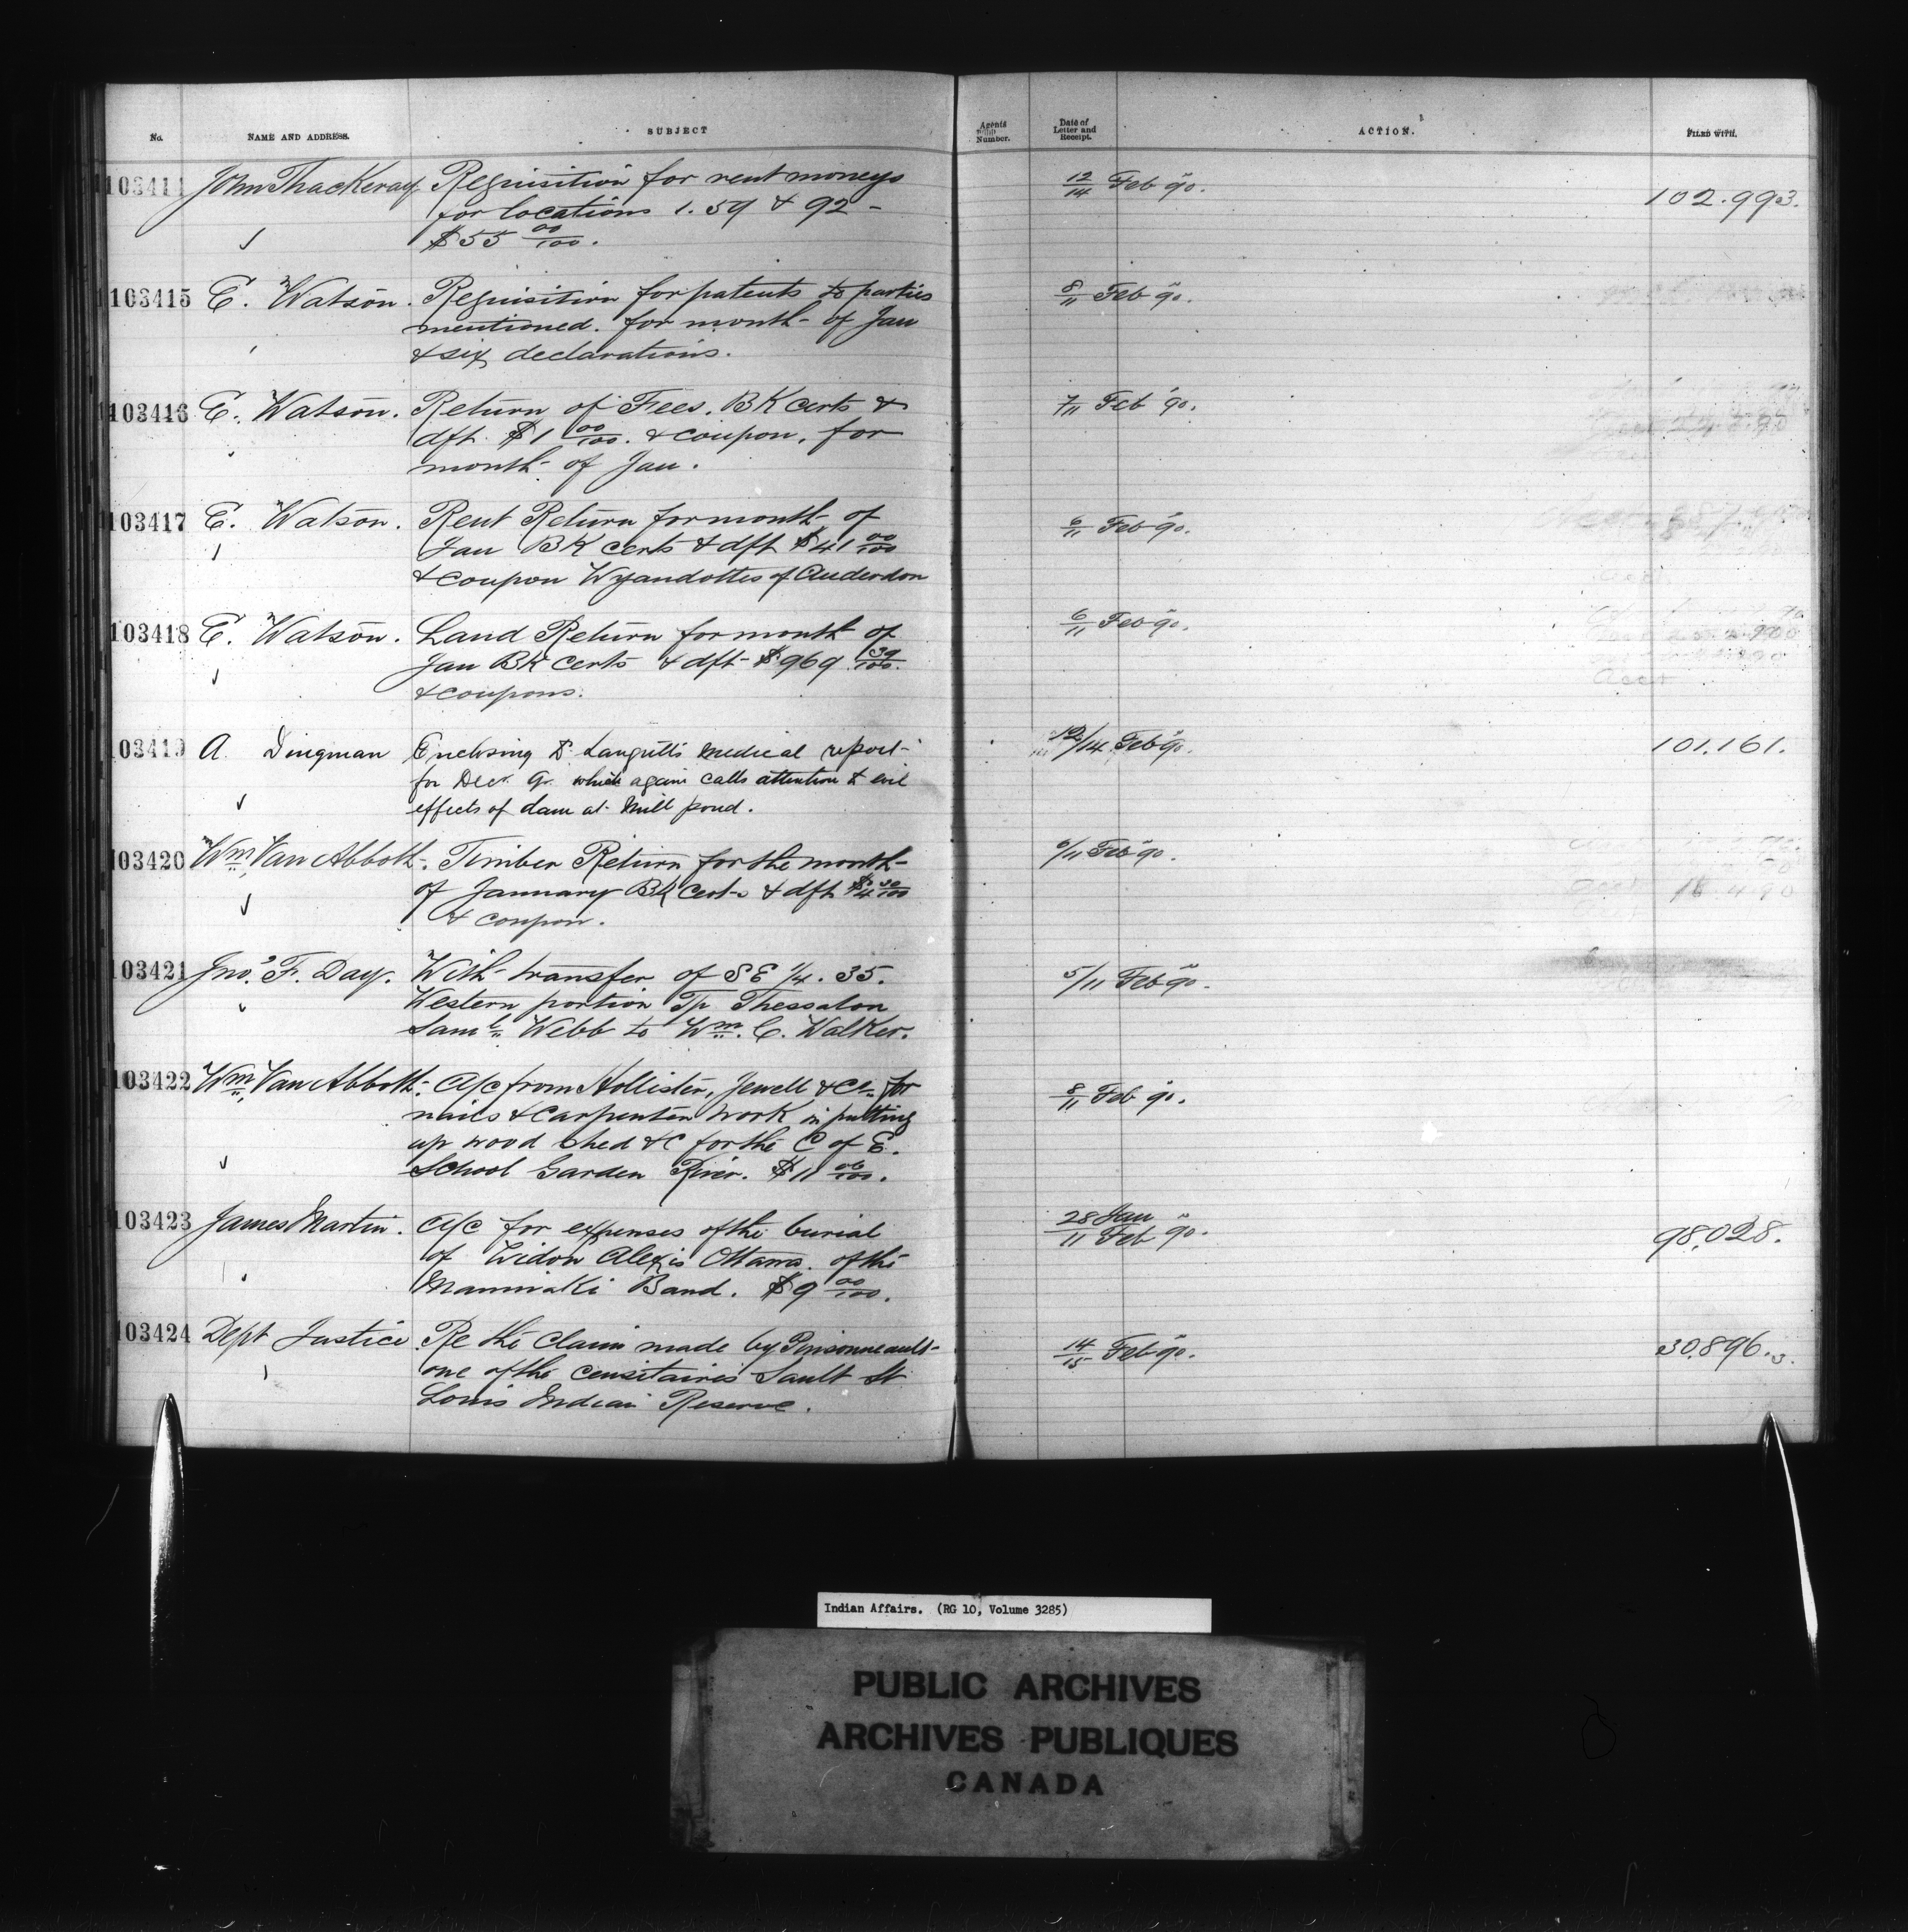 No. NAME AND ADDRESS. SUBJECT Agents Number. Date of Letter and Receipt. ACTION. FILED WITH.
103414 John Thackeray Requisition for rent moneys 12/14 Feb 90. 102.993.
for locations 1. 59 & 92 -
$55 00/100.
103415 E. Watson. Requisition for patents to parties 8/11 Feb 90.
mentioned. for month of Jan
& six declarations.
103416 E. Watson. Return of Fees. BK certs & 7/11 Feb 90.
dft. $1 00/100. & coupon, for
month of Jan.
103417 E. Watson. Rent Return for month of 6/11 Feb 90.
Jan BK certs & dft $41 00/100
& coupon Wyandottes of Anderdon
103418 E. Watson. Land Return for month of 6/11 Feb 90.
Jan BK certs & dft $969 39/100.
& coupons.
103419 A. Dingman Enclosing Dr. Langrill's medical report 12/14 Feb 90. 101.161.
for Decr. Qr. which again calls attention to evil
effects of dam at Mill pond.
103420 Wm. Van Abbott. Timber Return for the month 6/11 Feb 90.
of January BK certs & dft $4 30/100
& coupon.
103421 Jno. F. Day. With transfer of SE 1/4. 35. 5/11 Feb 90.
Western portion Tp Thessalon
Saml. Webb to Wm. C. Walker.
103422 Wm. Van Abbott. A/c from Hollister, Jewell & Co. for 8/11 Feb 90.
nails & carpenter work in putting
up wood shed &c for the C of E.
School Garden River. $11 06/100.
103423 James Martin. A/c for expenses of the burial 28 Jan/11 Feb 90. 98,028.
of Widow Alexis Ottawa. of the
Maniwaki Band. $9 00/100.
103424 Dept Justice Re the claim made by Pinsonneault 14/15 Feb 90. 30,896.3.
one of the censitaires Sault St
Louis Indian Reserve.
Indian Affairs. (RG 10, Volume 3285)
PUBLIC ARCHIVES
ARCHIVES PUBLIQUES
CANADA